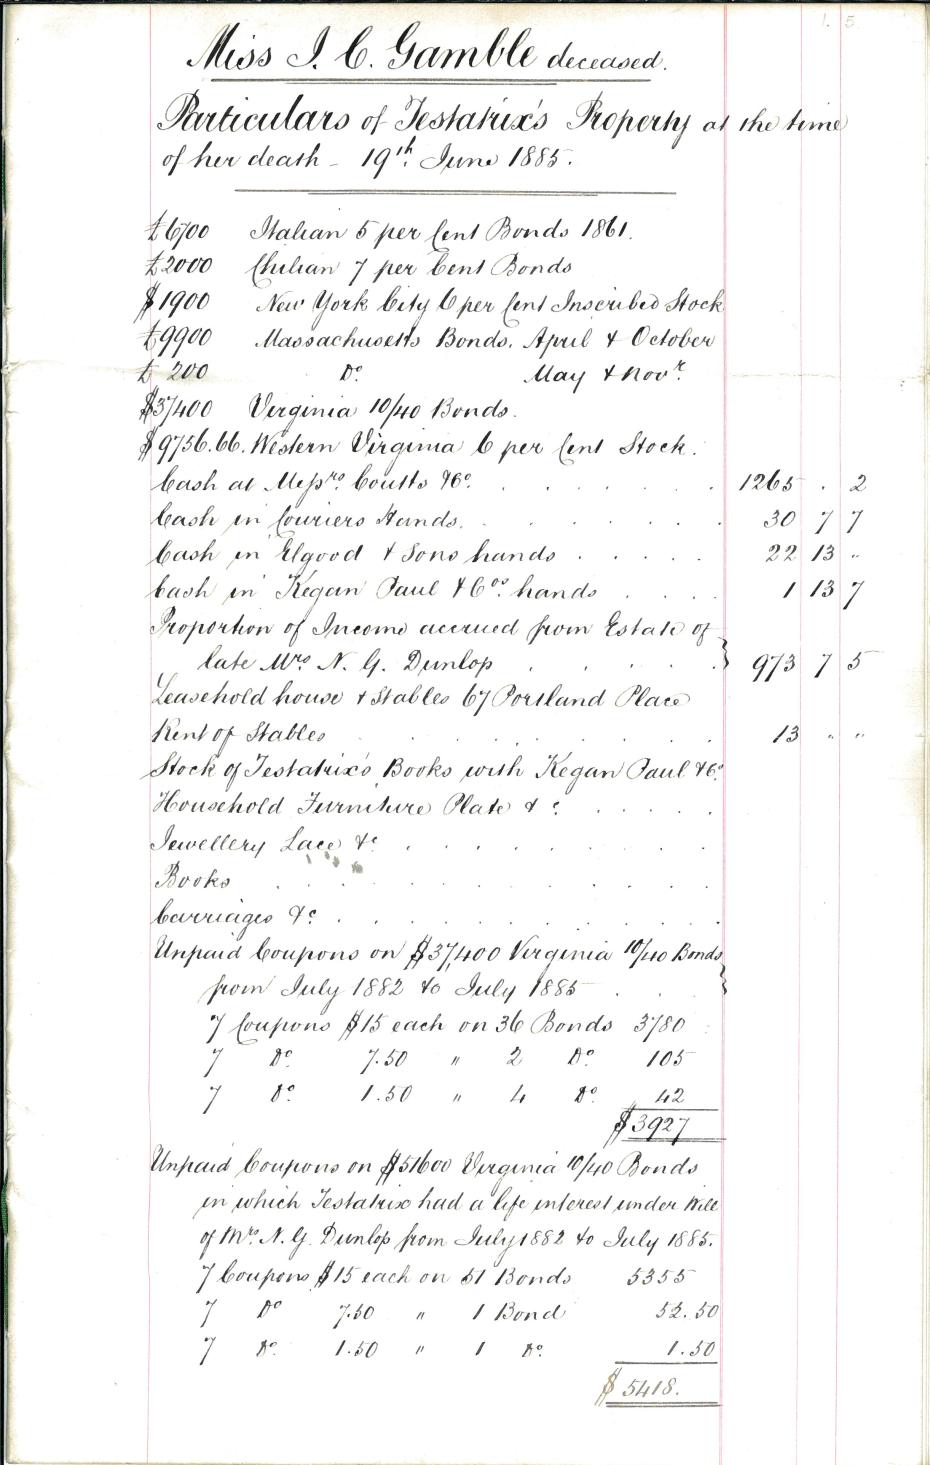 1. 5.
Miss J. C. Gamble deceased.
Particulars of Testatrix's Property at the time
of her death - 19th. June 1885.
£6700 Italian 5 per Cent Bonds 1861.
£2000 Chilian 7 per Cent Bonds
$1900 New York City 6 per Cent Inscribed Stock
£9900 Massachusetts Bonds. April & October
£ 200 Do. May & Novr.
$37400 Virginia 10/40 Bonds.
$9756.66. Western Virginia 6 per Cent Stock.
Cash at Messrs. Coutts &Co. . . . . . . 1265 . 2
Cash in Couriers Hands. . . . . . . . 30 7 7
Cash in Elgood & Sons hands . . . . . 22 13 "
Cash in Kegan Paul & Cos. hands . . . . 1 13 7
Proportion of Income accrued from Estate of
late Mrs. N. G. Dunlop . . . . . . } 973 7 5
Leasehold house & Stables 67 Portland Place
Rent of Stables . . . . . . . . . 13 " "
Stock of Testatrix's Books with Kegan Paul & Co.
Household Furniture Plate & c. . . . .
Jewellery Lace &c . . . . . . . . .
Books . . . . . . . . . . . .
Carriages &c . . . . . . . . . . .
Unpaid Coupons on $37,400 Virginia 10/40 Bonds
from July 1882 to July 1885 . . . }
7 Coupons $15 each on 36 Bonds 3780
7 Do. 7.50 " 2 Do. 105
7 Do. 1.50 " 4 Do. 42
$3927
Unpaid Coupons on $51600 Virginia 10/40 Bonds
in which Testatrix had a life interest under Will
of Mrs. N. G. Dunlop from July 1882 to July 1885.
7 Coupons $15 each on 51 Bonds 5355
7 Do 7.50 " 1 Bond 52.50
7 Do. 1.50 " 1 Do. 1.50
$5418.